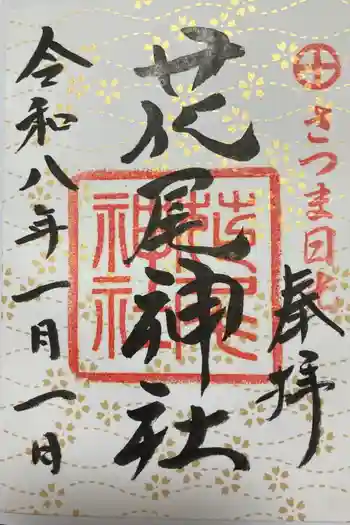 さつま日光
奉拝
花尾神社
花尾神社
令和八年一月一日